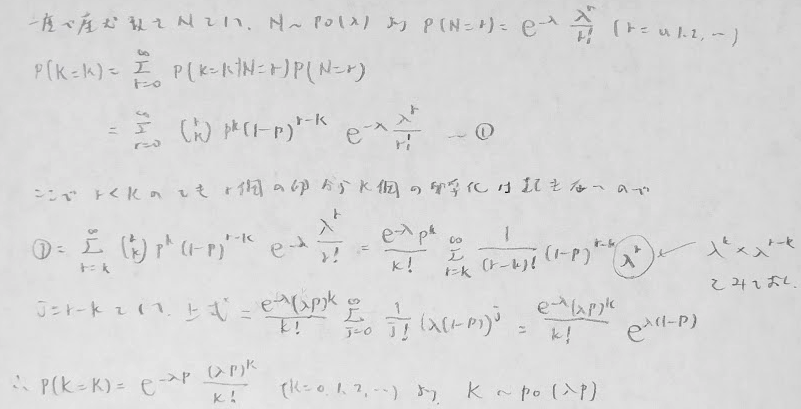 一度で産む数をNとして、N~Po(λ) より P(N=r) = e^{-λ} λ^r/r! (r=0,1,2,…)
P(K=k) = Σ_{r=0}^{∞} P(K=k|N=r)P(N=r)
= Σ_{r=0}^{∞} (r k) p^k(1-p)^{r-k} e^{-λ} λ^r/r! …①
ここで r<kのとき r個の卵からk個の卵孵化は起きないので
①= Σ_{r=k}^{∞} (r k) p^k (1-p)^{r-k} e^{-λ} λ^r/r! = e^{-λ}p^k/k! Σ_{r=k}^{∞} 1/(r-k)! (1-p)^{r-k} λ^r ← λ^k × λ^{r-k}
とみておく.
j=r-k として, 上式 = e^{-λ}(λp)^k/k! Σ_{j=0}^{∞} 1/j! (λ(1-p))^j = e^{-λ}(λp)^k/k! e^{λ(1-p)}
∴ P(K=k) = e^{-λp} (λp)^k/k! (k=0,1,2,…) より K ~ Po(λp)